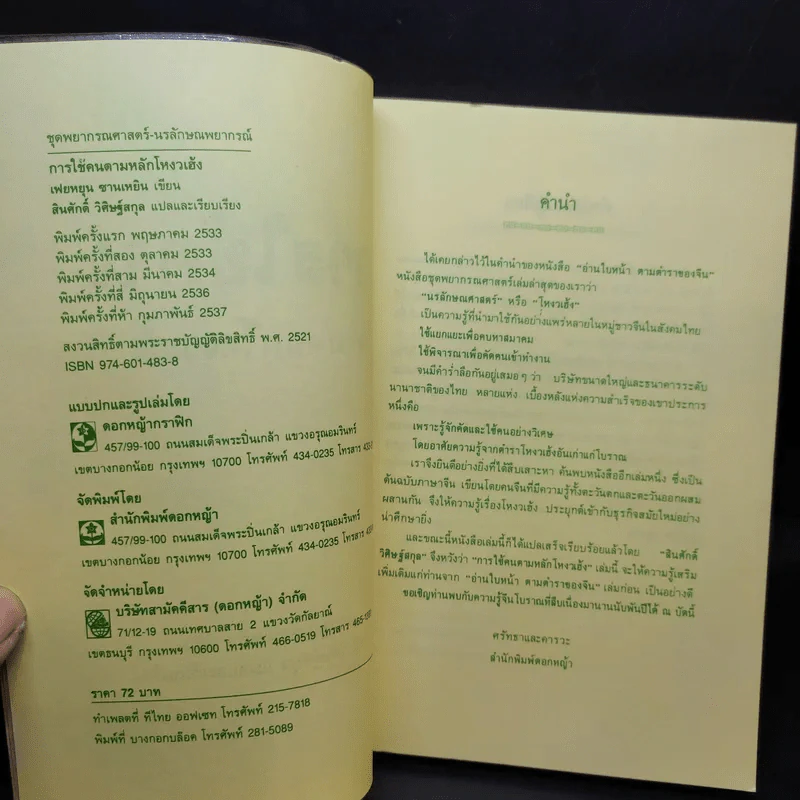 ชุดพยากรณศาสตร์-นรลักษณพยากรณ์
การใช้คนตามหลักโหงวเฮ้ง
เฟยหยุน ซานเหยิน เขียน
สินศักดิ์ วิศิษฐ์สกุล แปลและเรียบเรียง
พิมพ์ครั้งแรก พฤษภาคม 2533
พิมพ์ครั้งที่สอง ตุลาคม 2533
พิมพ์ครั้งที่สาม มีนาคม 2534
พิมพ์ครั้งที่สี่ มิถุนายน 2536
พิมพ์ครั้งที่ห้า กุมภาพันธ์ 2537
สงวนสิทธิ์ตามพระราชบัญญัติลิขสิทธิ์ พ.ศ. 2521
ISBN 974-601-483-8
แบบปกและรูปเล่มโดย
ดอกหญ้ากราฟิก
457/99-100 ถนนสมเด็จพระปิ่นเกล้า แขวงอรุณอมรินทร์
เขตบางกอกน้อย กรุงเทพฯ 10700 โทรศัพท์ 434-0235 โทรสาร
จัดพิมพ์โดย
สำนักพิมพ์ดอกหญ้า
457/99-100 ถนนสมเด็จพระปิ่นเกล้า แขวงอรุณอมรินทร์
เขตบางกอกน้อย กรุงเทพฯ 10700 โทรศัพท์ 434-0235 โทรสาร
จัดจำหน่ายโดย
บริษัทสามัคคีสาร (ดอกหญ้า) จำกัด
71/12-19 ถนนเทศบาลสาย 2 แขวงวัดกัลยาณ์
เขตธนบุรี กรุงเทพฯ 10600 โทรศัพท์ 466-0519 โทรสาร
ราคา 72 บาท
ทำเพลตที่ ทีไทย ออฟเซท โทรศัพท์ 215-7818
พิมพ์ที่ บางกอกบล๊อค โทรศัพท์ 281-5089
คำนำ
ได้เคยกล่าวไว้ในคำนำของหนังสือ "อ่านใบหน้า ตามตำราของจีน"
หนังสือชุดพยากรณศาสตร์เล่มล่าสุดของเราว่า
"นรลักษณศาสตร์" หรือ "โหงวเฮ้ง"
เป็นความรู้ที่นำมาใช้กันอย่างแพร่หลายในหมู่ชาวจีนในสังคมไทย
ใช้แยกแยะเพื่อคบหาสมาคม
ใช้พิจารณาเพื่อคัดคนเข้าทำงาน
จนมีคำร่ำลือกันอยู่เสมอๆ ว่า บริษัทขนาดใหญ่และธนาคารระดับ
นานาชาติของไทย หลายแห่ง เบื้องหลังแห่งความสำเร็จของเขาประการ
หนึ่งคือ
เพราะรู้จักคัดและใช้คนอย่างวิเศษ
โดยอาศัยความรู้จากตำราโหงวเฮ้งอันเก่าแก่โบราณ
เราจึงยินดีอย่างยิ่งที่ได้สืบเสาะหา ค้นพบหนังสืออีกเล่มหนึ่ง ซึ่งเป็น
ต้นฉบับภาษาจีน เขียนโดยคนจีนที่มีความรู้ทั้งตะวันตกและตะวันออกผสม
ผสานกัน จึงให้ความรู้เรื่องโหงวเฮ้ง ประยุกต์เข้ากับธุรกิจสมัยใหม่อย่าง
น่าศึกษายิ่ง
และขณะนี้หนังสือเล่มนี้ก็ได้แปลเสร็จเรียบร้อยแล้วโดย "สินศักดิ์
วิศิษฐ์สกุล" จึงหวังว่า "การใช้คนตามหลักโหงวเฮ้ง" เล่มนี้ จะให้ความรู้เสริม
เพิ่มเติมแก่ท่านจาก "อ่านใบหน้า ตามตำราของจีน" เล่มก่อน เป็นอย่างดี
ขอเชิญท่านพบกับความรู้จีนโบราณที่สืบเนื่องมานานนับพันปีได้ ณ บัดนี้
ศรัทธาและคารวะ
สำนักพิมพ์ดอกหญ้า